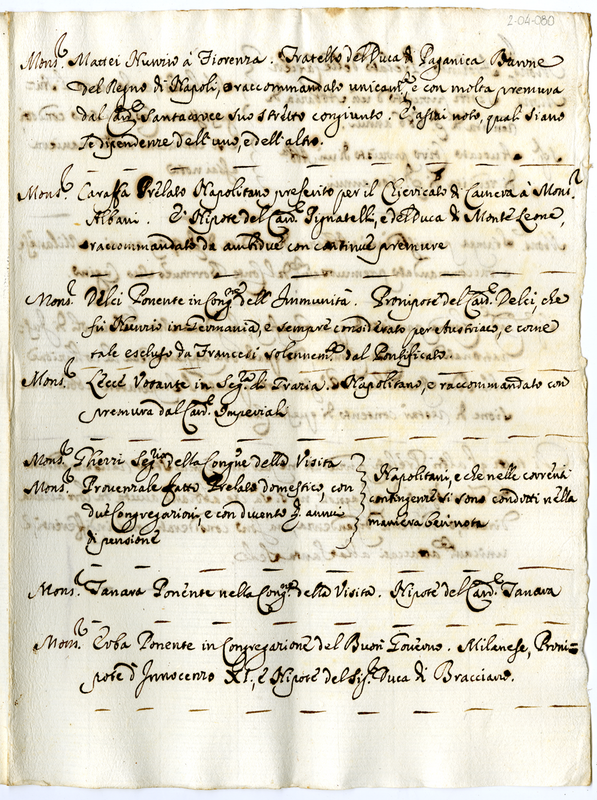 2-04-080
Mons.r Mattei Nunzio à Fiorenza. Fratello del Duca di Paganica Barone
del Regno di Napoli, e raccommandato unicam.te, e con molta premura
dal Card.l Santacroce suo stretto congiunto. E' assai noto, quali siano
le dipendenze dell'uno, e dell'altro.
Mons.r Caraffa Prelato Napolitano preferito per il Chiericato di Camera à Mons.r
Albani. E' Nipote del Card.l Pignatelli, e del Duca di Monte Leone,
raccommandato da ambidue con continue premure
Mons.r Delci Ponente in Cong.ne dell'Immunità. Pronipote del Card.l Delci, che
fù Nunzio in Germania, e sempre considerato per Austriaco, e come
tale escluso da Francesi solennem.te dal Pontificato.
Mons.r Lecce Votante in Seg.ra di Grazia. Napolitano, e raccommandato con
premura dal Card.l Imperiali
Mons.r Gherri Seg.rio della Cong.ne della Visita
Mons.r Provenzale fatto Prelato domestico, con
due Congregazioni, e con ducento annui
di pensione
Napolitani, e che nelle correnti
contingenze si sono condotti nella
maniera ben nota
Mons.r Tanara Ponente nella Cong.ne della Visita. Nipote del Card.l Tanara
Mons.r Erba Ponente in Congregazione del Buon Governo. Milanese, Proni=
pote d'Innocenzo XI, e Nipote del Sig.r Duca di Bracciano.